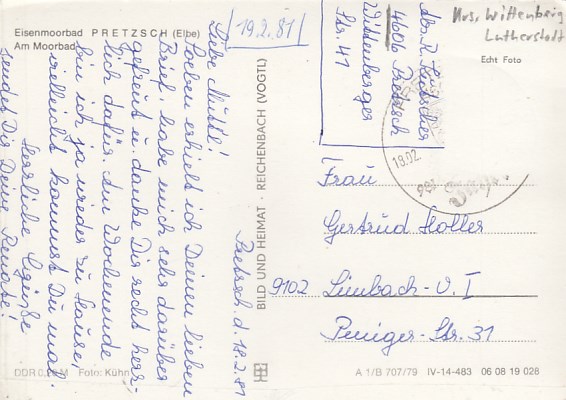 Eisenmoorbad PRETZSCH (Elbe)
Am Moorbad
19.2.81
Krs. Wittenberg
Lutherstadt
Echt Foto
Pretzsch, d. 18.2.81
Liebe Mutti!
Soeben erhielt ich Deinen lieben
Brief, habe mich sehr darüber
gefreut u. danke Dir recht herz-
lich dafür. Am Wochenende
bin ich ja wieder zu Hause,
vielleicht kommst Du mal.
Herzliche Grüße
sendet Dir Deine Renate!
Abs. R.
4606 Pretzsch
Wittenberger
Str. 41
18.02.
Frau
Gertrud Holler
9102 Limbach-O. I
Peniger-Str. 31
BILD UND HEIMAT · REICHENBACH (VOGTL)
DDR M Foto: Kühn
A 1/B 707/79 IV-14-483 06 08 19 028